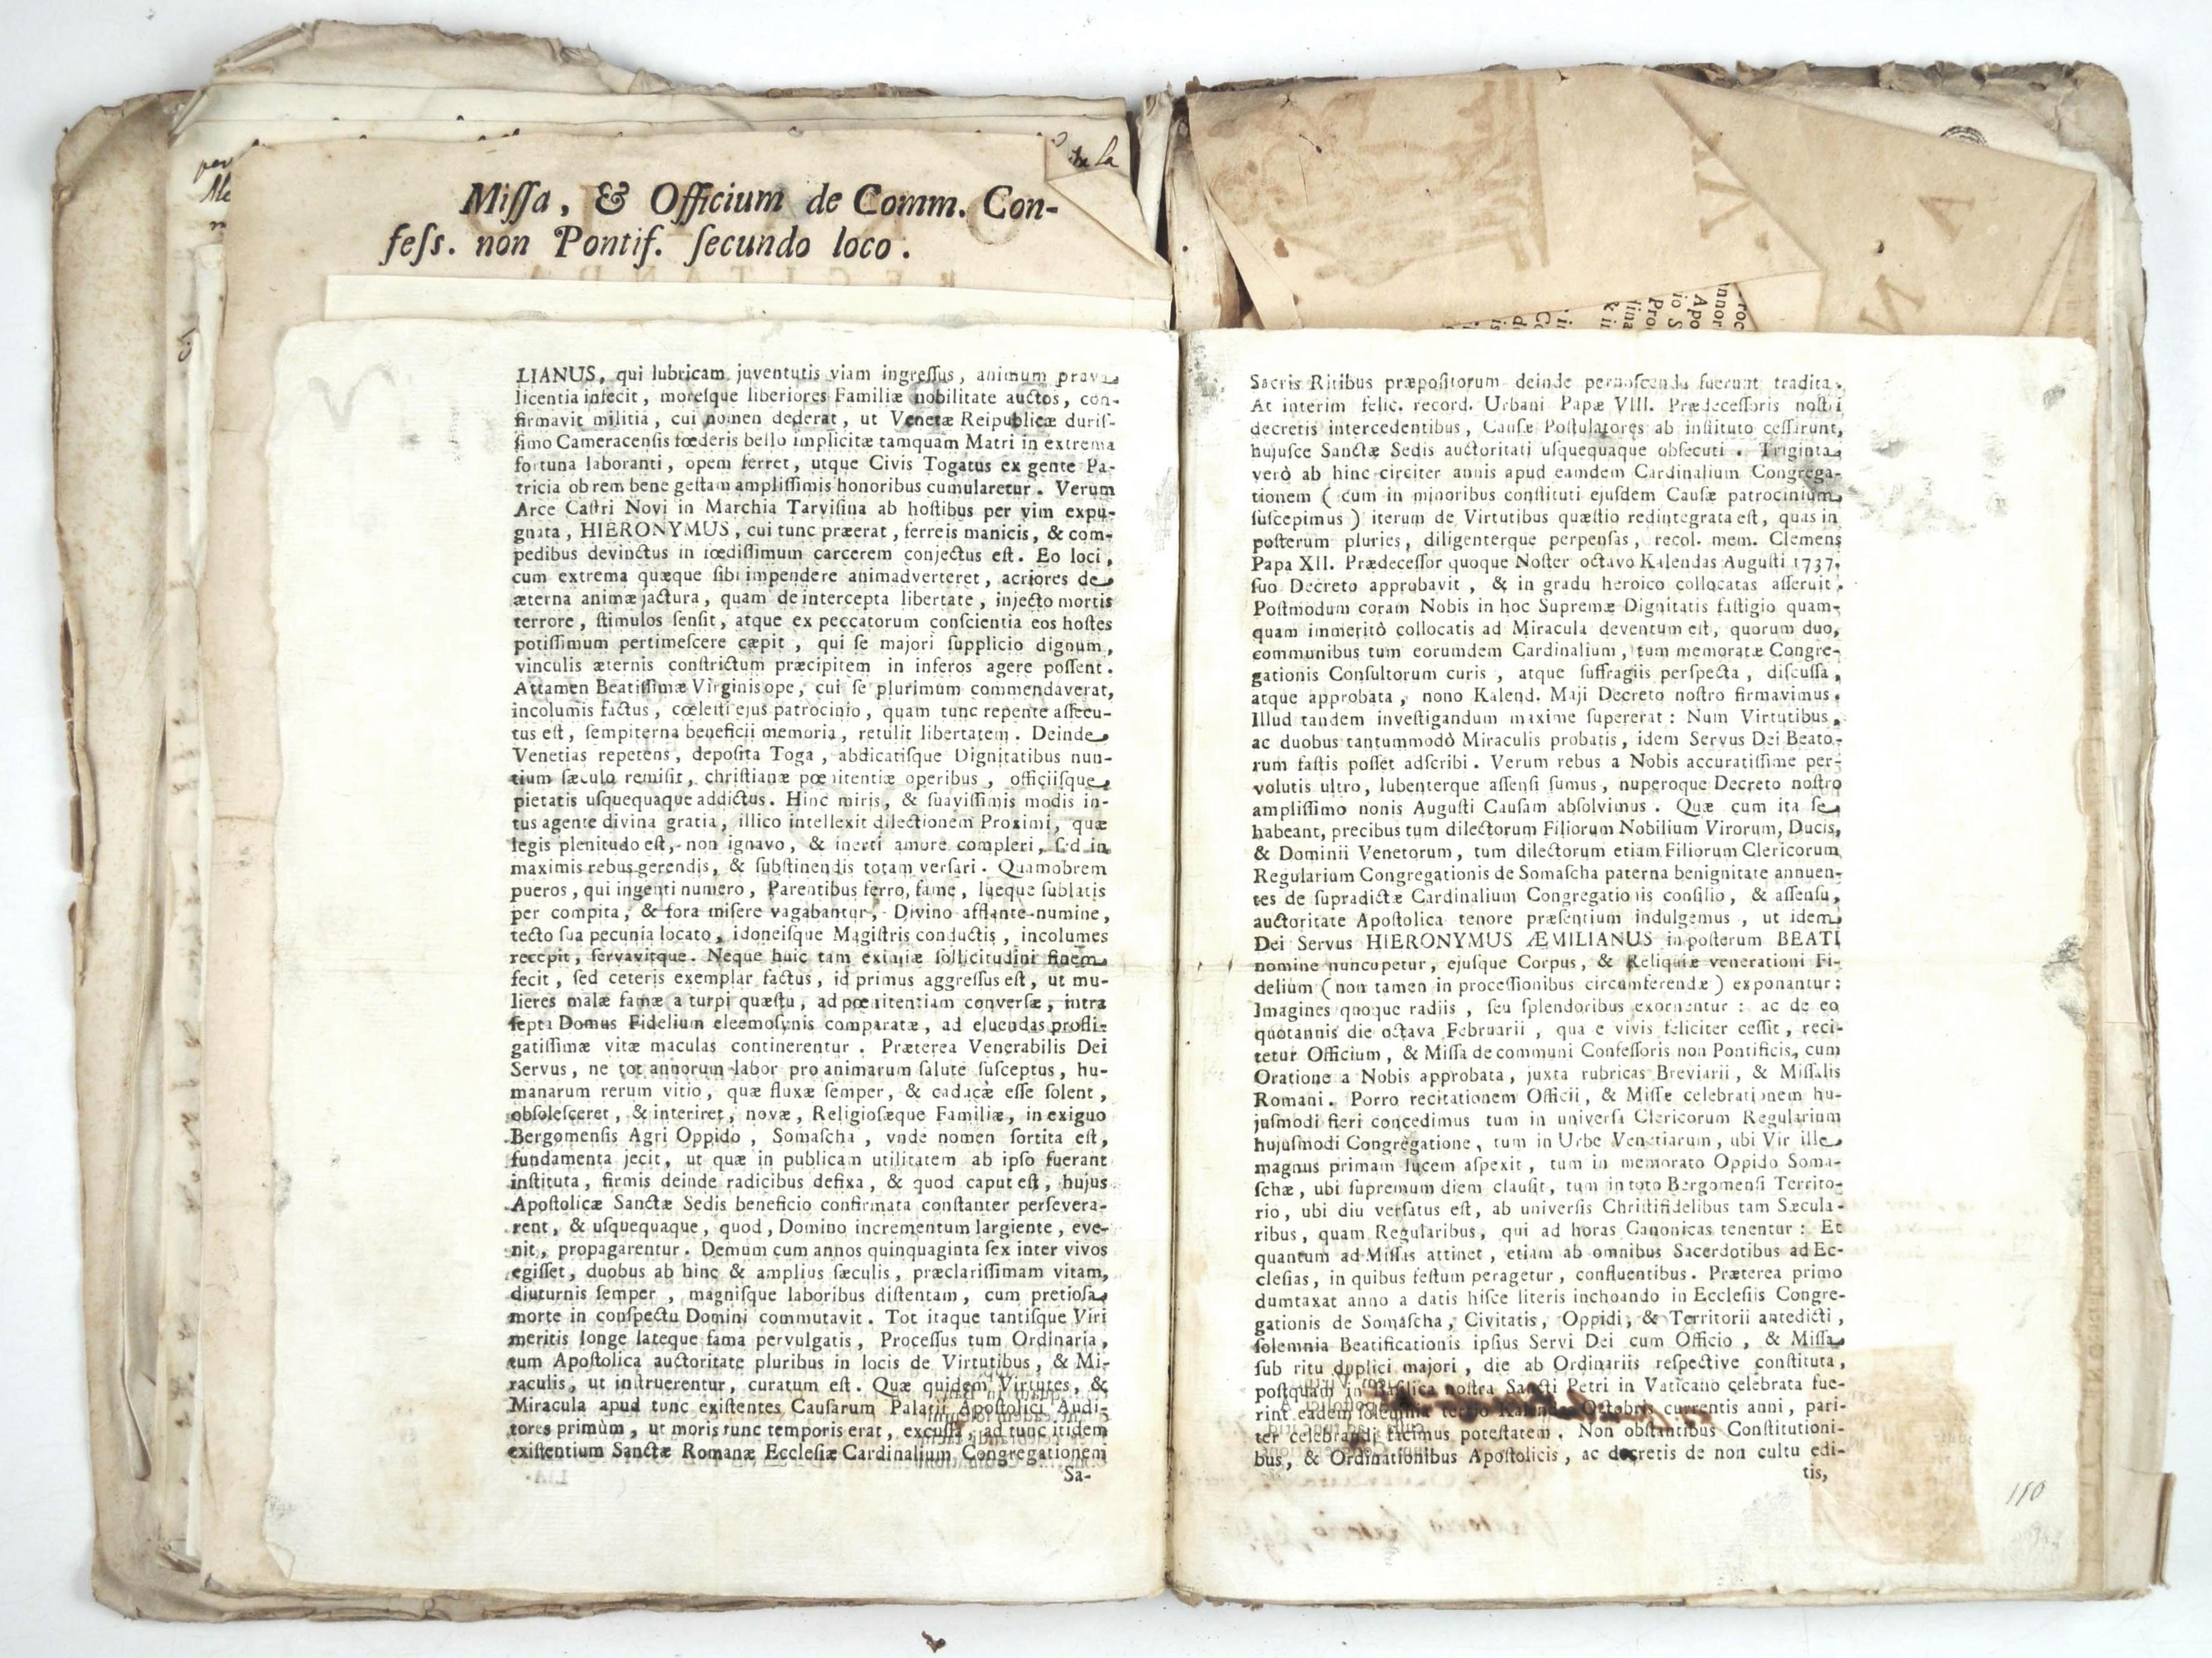 Missa, & Officium de Comm. Con-
fess. non Pontif. secundo loco.
LIANUS, qui lubricam juventutis viam ingressus, animum prava
licentia infecit, moresque liberiores Familiæ nobilitate auctos, con-
firmavit militia, cui nomen dederat, ut Venetæ Reipublicæ duris-
simo Cameracensis fœderis bello implicitæ tamquam Matri in extrema
fortuna laboranti, opem ferret, utque Civis Togatus ex gente Pa-
tricia ob rem bene gestam amplissimis honoribus cumularetur. Verum
Arce Castri Novi in Marchia Tarvisina ab hostibus per vim expu-
gnata, HIERONYMUS, cui tunc præerat, ferreis manicis, & com-
pedibus devinctus in fœdissimum carcerem conjectus est. Eo loci,
cum extrema quæque sibi impendere animadverteret, acriores de
æterna animæ jactura, quam de intercepta libertate, injecto mortis
terrore, stimulos sensit, atque ex peccatorum conscientia eos hostes
potissimum pertimescere cæpit, qui se majori supplicio dignum,
vinculis æternis constrictum præcipitem in inferos agere possent.
Attamen Beatissimæ Virginis ope, cui se plurimum commendaverat,
incolumis factus, cœlesti ejus patrocinio, quam tunc repente assecu-
tus est, sempiterna beneficii memoria, retulit libertatem. Deinde
Venetias repetens, deposita Toga, abdicatisque Dignitatibus nun-
tium sæculo remisit, christianæ pœnitentiæ operibus, officiisque
pietatis usquequaque addictus. Hinc miris, & suavissimis modis in-
tus agente divina gratia, illico intellexit dilectionem Proximi, quæ
legis plenitudo est, non ignavo, & inerti amore compleri, sed in
maximis rebus gerendis, & substinendis totam versari. Quamobrem
pueros, qui ingenti numero, Parentibus ferro, fame, lueque sublatis
per compita, & fora misere vagabantur, Divino afflante numine,
tecto sua pecunia locato, idoneisque Magistris conductis, incolumes
recepit, servavitque. Neque huic tam eximiæ sollicitudini finem
fecit, sed ceteris exemplar factus, id primus aggressus est, ut mu-
lieres malæ famæ a turpi quæstu, ad pœnitentiam conversæ, intra
septa Domus Fidelium eleemosynis comparatæ, ad eluendas profli-
gatissimæ vitæ maculas continerentur. Præterea Venerabilis Dei
Servus, ne tot annorum labor pro animarum salute susceptus, hu-
manarum rerum vitio, quæ fluxæ semper, & caducæ esse solent,
obsolesceret, & interiret, novæ, Religiosæque Familiæ, in exiguo
Bergomensis Agri Oppido, Somascha, vnde nomen sortita est,
fundamenta jecit, ut quæ in publicam utilitatem ab ipso fuerant
instituta, firmis deinde radicibus defixa, & quod caput est, hujus
Apostolicæ Sanctæ Sedis beneficio confirmata constanter persevera-
rent, & usquequaque, quod, Domino incrementum largiente, eve-
nit, propagarentur. Demum cum annos quinquaginta sex inter vivos
egisset, duobus ab hinc & amplius sæculis, præclarissimam vitam,
diuturnis semper, magnisque laboribus distentam, cum pretiosa
morte in conspectu Domini commutavit. Tot itaque tantisque Viri
meritis longe lateque fama pervulgatis, Processus tum Ordinaria,
tum Apostolica auctoritate pluribus in locis de Virtutibus, & Mi-
raculis, ut instruerentur, curatum est. Quæ quidem Virtutes, &
Miracula apud tunc existentes Causarum Palatii Apostolici Audi-
tores primùm, ut moris tunc temporis erat, excussa, ad tunc itidem
existentium Sanctæ Romanæ Ecclesiæ Cardinalium Congregationem
Sa-
Sacris Ritibus præpositorum deinde pernoscenda fuerunt tradita.
At interim felic. record. Urbani Papæ VIII. Prædecessoris nostri
decretis intercedentibus, Causæ Postulatores ab instituto cessarunt,
hujusce Sanctæ Sedis auctoritati usquequaque obsecuti. Triginta
verò ab hinc circiter annis apud eamdem Cardinalium Congrega-
tionem (cum in minoribus constituti ejusdem Causæ patrocinium
suscepimus) iterum de Virtutibus quæstio redintegrata est, quas in
posterum pluries, diligenterque perpensas, recol. mem. Clemens
Papa XII. Prædecessor quoque Noster octavo Kalendas Augusti 1737.
suo Decreto approbavit, & in gradu heroico collocatas asseruit.
Postmodum coram Nobis in hoc Supremæ Dignitatis fastigio quam-
quam immeritò collocatis ad Miracula deventum est, quorum duo,
communibus tum eorumdem Cardinalium, tum memoratæ Congre-
gationis Consultorum curis, atque suffragiis perspecta, discussa,
atque approbata, nono Kalend. Maji Decreto nostro firmavimus.
Illud tandem investigandum maxime supererat: Num Virtutibus,
ac duobus tantummodò Miraculis probatis, idem Servus Dei Beato-
rum fastis posset adscribi. Verum rebus a Nobis accuratissime per-
volutis ultro, lubenterque assensi sumus, nuperoque Decreto nostro
amplissimo nonis Augusti Causam absolvimus. Quæ cum ita se
habeant, precibus tum dilectorum Filiorum Nobilium Virorum, Ducis,
& Dominii Venetorum, tum dilectorum etiam Filiorum Clericorum
Regularium Congregationis de Somascha paterna benignitate annuen-
tes de supradictæ Cardinalium Congregationis consilio, & assensu,
auctoritate Apostolica tenore præsentium indulgemus, ut idem
Dei Servus HIERONYMUS ÆMILIANUS in posterum BEATI
nomine nuncupetur, ejusque Corpus, & Reliquiæ venerationi Fi-
delium (non tamen in processionibus circumferendæ) exponantur:
Imagines quoque radiis, seu splendoribus exornentur: ac de eo
quotannis die octava Februarii, qua e vivis feliciter cessit, reci-
tetur Officium, & Missa de communi Confessoris non Pontificis, cum
Oratione a Nobis approbata, juxta rubricas Breviarii, & Missalis
Romani. Porro recitationem Officii, & Missæ celebrationem hu-
jusmodi fieri concedimus tum in universa Clericorum Regularium
hujusmodi Congregatione, tum in Urbe Venetiarum, ubi Vir ille
magnus primam lucem aspexit, tum in memorato Oppido Soma-
schæ, ubi supremum diem clausit, tum in toto Bergomensi Territo-
rio, ubi diu versatus est, ab universis Christifidelibus tam Sæcula-
ribus, quam Regularibus, qui ad horas Canonicas tenentur: Et
quantum ad Missas attinet, etiam ab omnibus Sacerdotibus ad Ec-
clesias, in quibus festum peragetur, confluentibus. Præterea primo
dumtaxat anno a datis hisce literis inchoando in Ecclesiis Congre-
gationis de Somascha, Civitatis, Oppidi, & Territorii antedicti,
solemnia Beatificationis ipsius Servi Dei cum Officio, & Missa
sub ritu duplici majori, die ab Ordinariis respective constituta,
postquam in Basilica nostra Sancti Petri in Vaticano celebrata fue-
rint eadem solemnia tertio Kalendas Octobris currentis anni, pari-
ter celebrandi facimus potestatem. Non obstantibus Constitutioni-
bus, & Ordinationibus Apostolicis, ac decretis de non cultu edi-
tis,
110